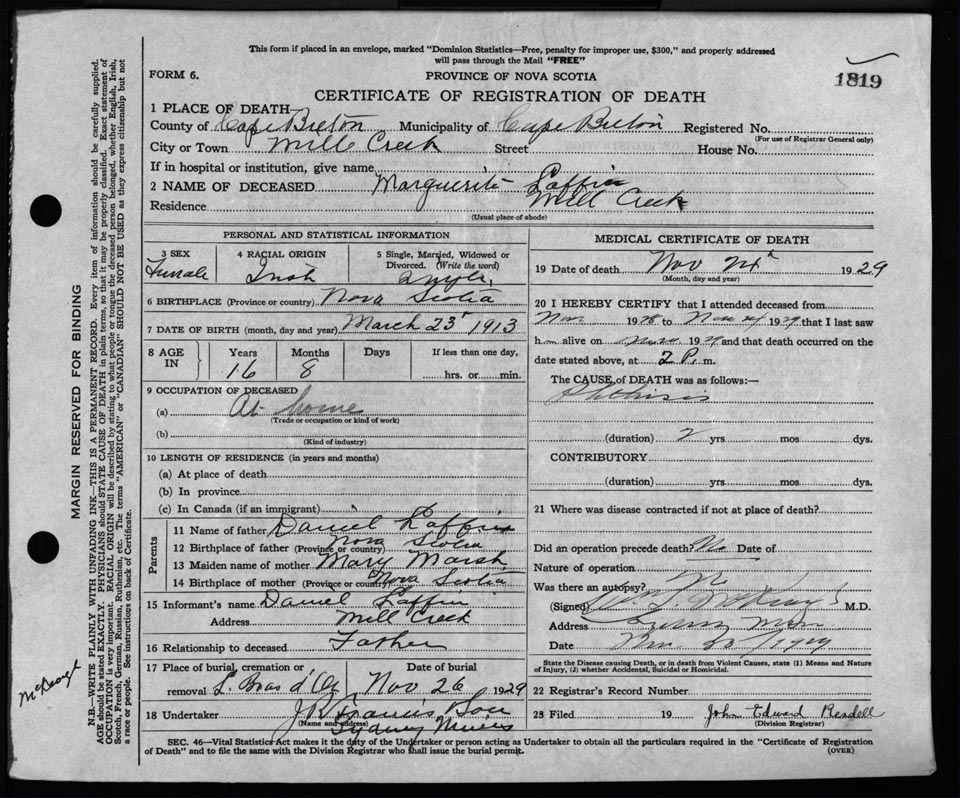 This form if placed in an envelope, marked "Dominion Statistics—Free, penalty for improper use, $300," and properly addressed
will pass through the Mail "FREE"
FORM 6.
PROVINCE OF NOVA SCOTIA
1819
CERTIFICATE OF REGISTRATION OF DEATH
1 PLACE OF DEATH—
County of Cape Breton Municipality of Cape Breton Registered No.
(For use of Registrar General only)
City or Town Mill Creek Street House No.
If in hospital or institution, give name
2 NAME OF DECEASED Marguerite Laffin
Residence Mill Creek
(Usual place of abode)
PERSONAL AND STATISTICAL INFORMATION
3 SEX
Female
4 RACIAL ORIGIN
Irish
5 Single, Married, Widowed or
Divorced. (Write the word)
Single
6 BIRTHPLACE (Province or country) Nova Scotia
7 DATE OF BIRTH (month, day and year) March 23rd 1913
8 AGE
IN
Years
16
Months
8
Days
If less than one day,
hrs. or min.
9 OCCUPATION OF DECEASED
(a) At home
(Trade or occupation or kind of work)
(b)
(Kind of industry)
10 LENGTH OF RESIDENCE (in years and months)
(a) At place of death
(b) In province
(c) In Canada (if an immigrant)
Parents
11 Name of father Daniel Laffin
12 Birthplace of father (Province or country) Nova Scotia
13 Maiden name of mother Mary Marsh
14 Birthplace of mother (Province or country) Nova Scotia
15 Informant's name Daniel Laffin
Address Mill Creek
16 Relationship to deceased Father
17 Place of burial, cremation or
removal L. Bras d'Or
Date of burial
Nov 26 1929
18 Undertaker J R Francis Boce
(Name and address) Sydney Mines
MEDICAL CERTIFICATE OF DEATH
19 Date of death Nov 24th 1929
(Month, day and year)
20 I HEREBY CERTIFY that I attended deceased from
Nov 1928 to Nov 24 1929 that I last saw
h alive on Nov 1929 and that death occurred on the
date stated above, at 2 P. m.
The CAUSE of DEATH was as follows:—
Phthisis
(duration) 2 yrs. mos. dys.
CONTRIBUTORY
(duration) yrs. mos. dys.
21 Where was disease contracted if not at place of death?
Did an operation precede death? No Date of
Nature of operation
Was there an autopsy? No
(Signed) M.D.
Address Sydney Mines
Date Nov 1929
State the Disease causing Death, or in death from Violent Causes, state (1) Means and Nature
of Injury, (2) whether Accidental, Suicidal or Homicidal.
22 Registrar's Record Number
23 Filed 19 John Edward Rendell
(Division Registrar)
SEC. 46—Vital Statistics Act makes it the duty of the Undertaker or person acting as Undertaker to obtain all the particulars required in the "Certificate of Registration
of Death" and to file the same with the Division Registrar who shall issue the burial permit. (OVER)
MARGIN RESERVED FOR BINDING
N.B.—WRITE PLAINLY WITH UNFADING INK—THIS IS A PERMANENT RECORD. Every item of information should be carefully supplied.
AGE should be stated EXACTLY. PHYSICIANS should STATE CAUSE OF DEATH in plain terms, so that it may be properly classified. Exact statement of
OCCUPATION is very important. RACIAL ORIGIN will be described by stating to what people or tongue the deceased person belonged, whether English, Irish,
Scotch, French, German, Russian, Ruthenian, etc. The terms "AMERICAN" or "CANADIAN" SHOULD NOT BE USED as they express citizenship but not
a race or people. See instructions on back of Certificate.